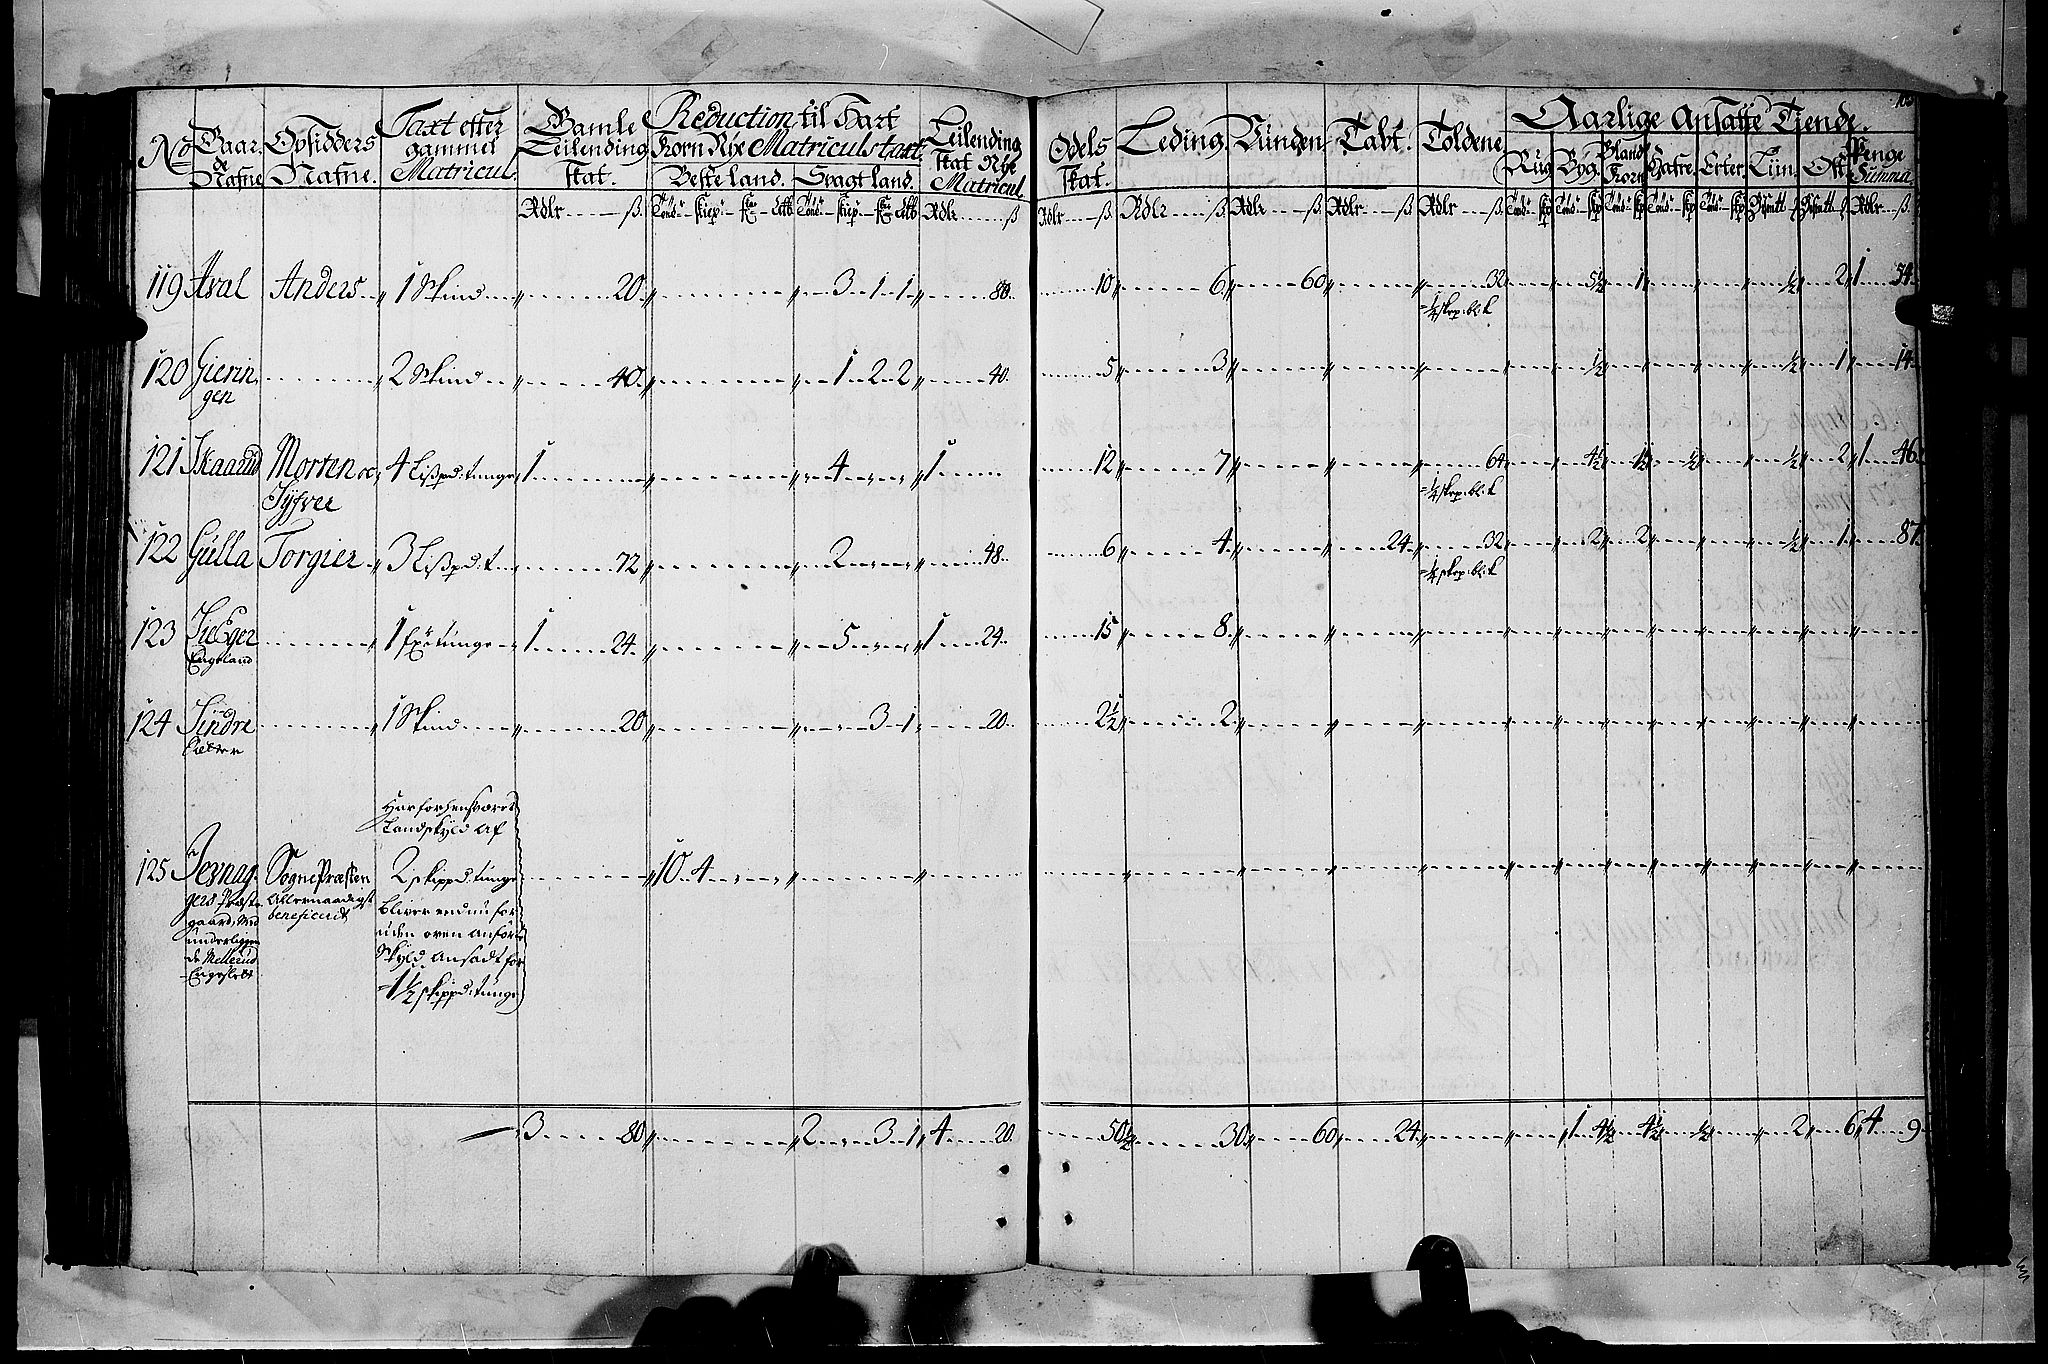 No Gaar- Opsidders Taxt efter Gamle Reduction til Hart Leilending Odels Leding. Vunden Tabt. Toldene Aarlige Ansatte Tiende.
de gammel Leilending Korn Nÿe Matriculstaxt skat Nÿe skat.
Nafne Nafne. Matricul. skat. Beste land. Svagt land. Matricul. Rug Byg Bland Korn Hafre Erter Liin Ost Penge Summa.
Rdlr ß. Rdlr ß Rdlr ß. Rdlr ß. Rdlr ß. Rdlr ß. Rdlr ß. Rdlr ß.
119 Aval Anders 1 Skind 20 3 1 1 80 10 6 60 32 5½ 1 ½ 2 1 54
=¼ skep: bl: k
120 Gierin 2 Skind 40 1 2 2 40 5 3 ½ ½ 1 14
gen
121 Skaarud Morten oc 4 Lißpd: tunge 1 4 1 12 7 64 4½ 1½ ½ ½ 2 1 46
Syfver =¼ skep: bl: k
122 Gulla Torgier 3 Lißpd: t 72 2 48 6 4 24 32 2 2 ½ 1 87
=¼ skep: bl: k
123 1 tunge 1 24 5 1 24 15 8
Engeland
124 Sindre 1 Skind 20 3 1 20 2½ 2
Har forhen været
Landskyld af
125 Jevnag- SognePræsten 2 skippd: tunge 10 4
gers Præste- Allernaadigst bliver endnu for
gaard, Med beneficerit uden oven anførte
underliggen Skyld ansadt for
de Mellerud =1½ skippd: tunge
Engeslett
3 80 2 3 1 4 20 50½ 30 60 24 1 4½ 4½ ½ 2 6 4 9